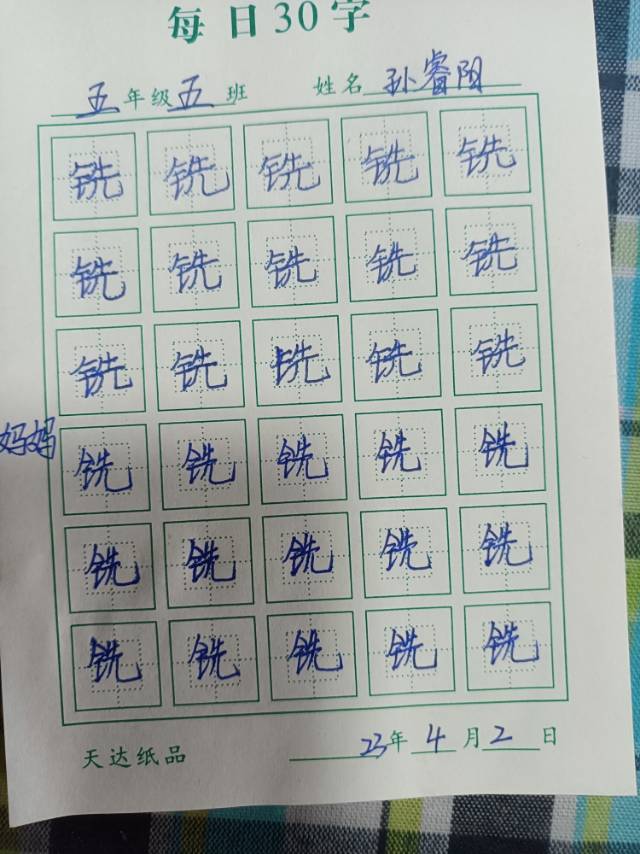 每日30字
五年级五班 姓名孙睿阳
铣铣铣铣铣
铣铣铣铣铣
铣铣铣铣铣
妈妈
铣铣铣铣铣
铣铣铣铣铣
铣铣铣铣铣
天达纸品 23年4月2日